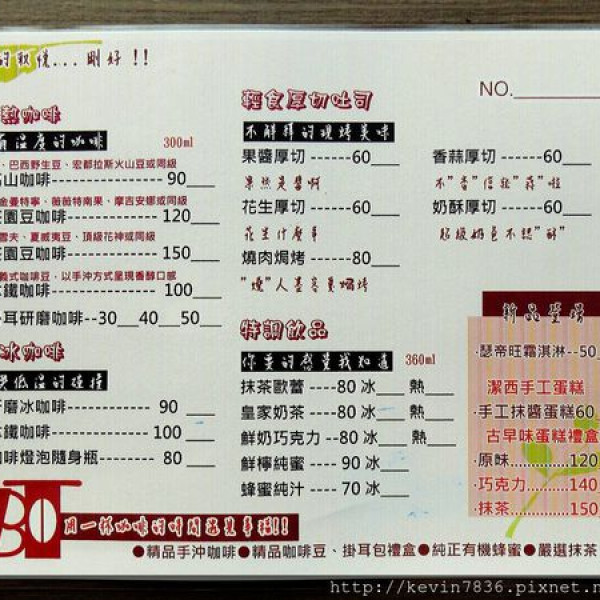 的秋慌...剛好!!
NO.
熱咖啡
有溫度的咖啡 300ml
、巴西野生豆、宏都拉斯火山豆或同級
高山咖啡 90
金曼特寧、薇薇特南果、摩吉安娜或同級
莊園豆咖啡 120
雪夫、夏威夷豆、頂級花神或同級
莊園豆咖啡 150
義式咖啡豆,以手沖方式呈現香醇口感
拿鐵咖啡 100
掛耳研磨咖啡--30 40 50
冰咖啡
低溫的碰撞
研磨冰咖啡 90
拿鐵咖啡 100
咖啡燈泡隨身瓶 80
輕食厚切吐司
不鮮拜的現烤美味
果醬厚切 60
果然是醬啊
花生厚切 60
花生什麼事
燒肉焗烤 80
"燒"人墨客裏焗烤
香蒜厚切 60
不"香"信從"蒜"啦
奶酥厚切 60
超級奶色不認"酥"
特調飲品
你要的感覺我知道 360ml
抹茶歐蕾 80 冰 熱
皇家奶茶 80 冰 熱
鮮奶巧克力 --80 冰 熱
鮮檸純蜜 ---- 90 冰
蜂蜜純汁 ---- 70 冰
新品登場
·瑟帝旺霜淇淋--50
潔西手工蛋糕
·手工抹醬蛋糕60
古早味蛋糕禮盒
·原味 120
·巧克力 140
·抹茶 150
用一杯咖啡的時間這是幸福!!
●精品手沖咖啡 ●精品咖啡豆、掛耳包禮盒 ●純正有機蜂蜜 ●嚴選抹茶
http://kevin7836.pixnet.n